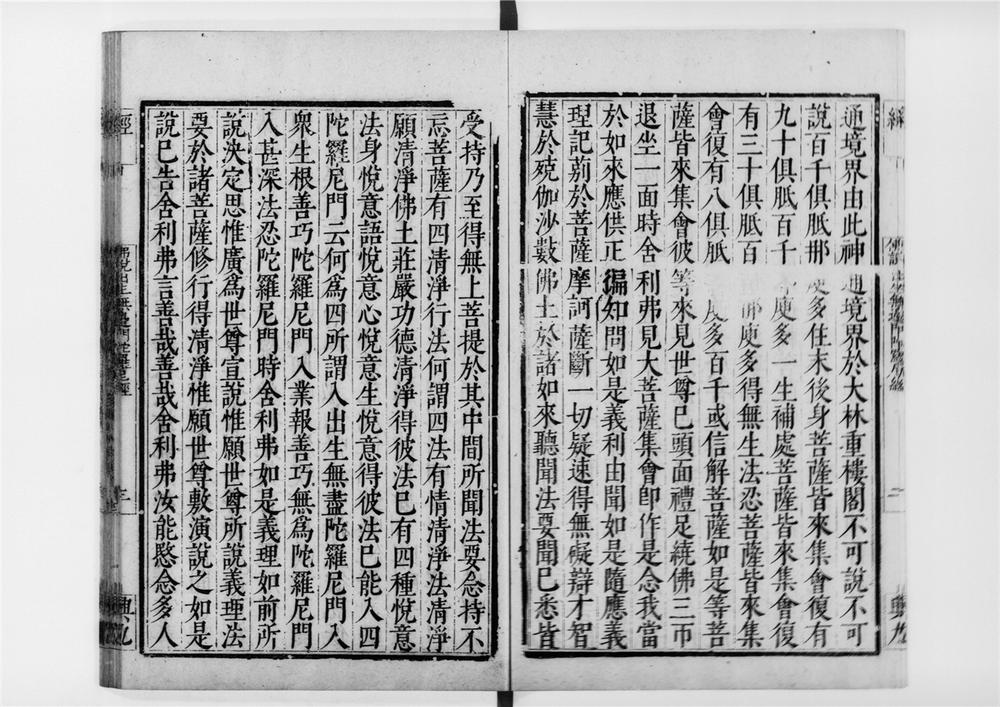 通境界由此神通境界於大林重樓閣不可說不可
說百千俱胝那庾多住末後身菩薩皆來集會復有
九十俱胝百千庾多一生補處菩薩皆來集會復
有三十俱胝百庾多得無生法忍菩薩皆來集
會復有八俱胝庾多百千或信解菩薩如是等菩
薩皆來集會彼等來見世尊已頭面禮足繞佛三帀
退坐一面時舍利弗見大菩薩集會即作是念我當
於如來應供正徧知問如是義利由聞如是隨應義
理記莂於菩薩摩訶薩斷一切疑速得無礙辯才智
慧於殑伽沙數佛土於諸如來聽聞法要聞已悉皆
受持乃至得無上菩提於其中間所聞法要念持不
忘菩薩有四清淨行法何謂四法有情清淨法清淨
願清淨佛土莊嚴功德清淨得彼法已有四種悅意
法身悅意語悅意心悅意生悅意得彼法已能入四
陀羅尼門云何為四所謂入出生無盡陀羅尼門入
眾生根善巧陀羅尼門入業報善巧無為陀羅尼門
入甚深法忍陀羅尼門時舍利弗如是義理如前所
說決定思惟廣為世尊宣說惟願世尊所說義理法
要於諸菩薩修行得清淨惟願世尊敷演說之如是
說已告舍利弗言善哉善哉舍利弗汝能愍念多人
經
三
興九